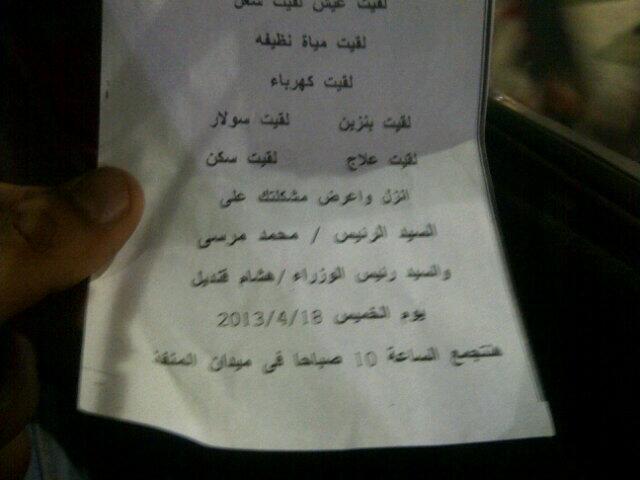 لقيت عيش لقيت شغل
لقيت مياة نظيفه
لقيت كهرباء
لقيت بنزين لقيت سولار
لقيت علاج لقيت سكن
انزل واعرض مشكلتك على
السيد الرئيس / محمد مرسى
والسيد رئيس الوزراء /هشام قنديل
يوم الخميس 2013/4/18
هنتجمع الساعة 10 صباحا فى ميدان